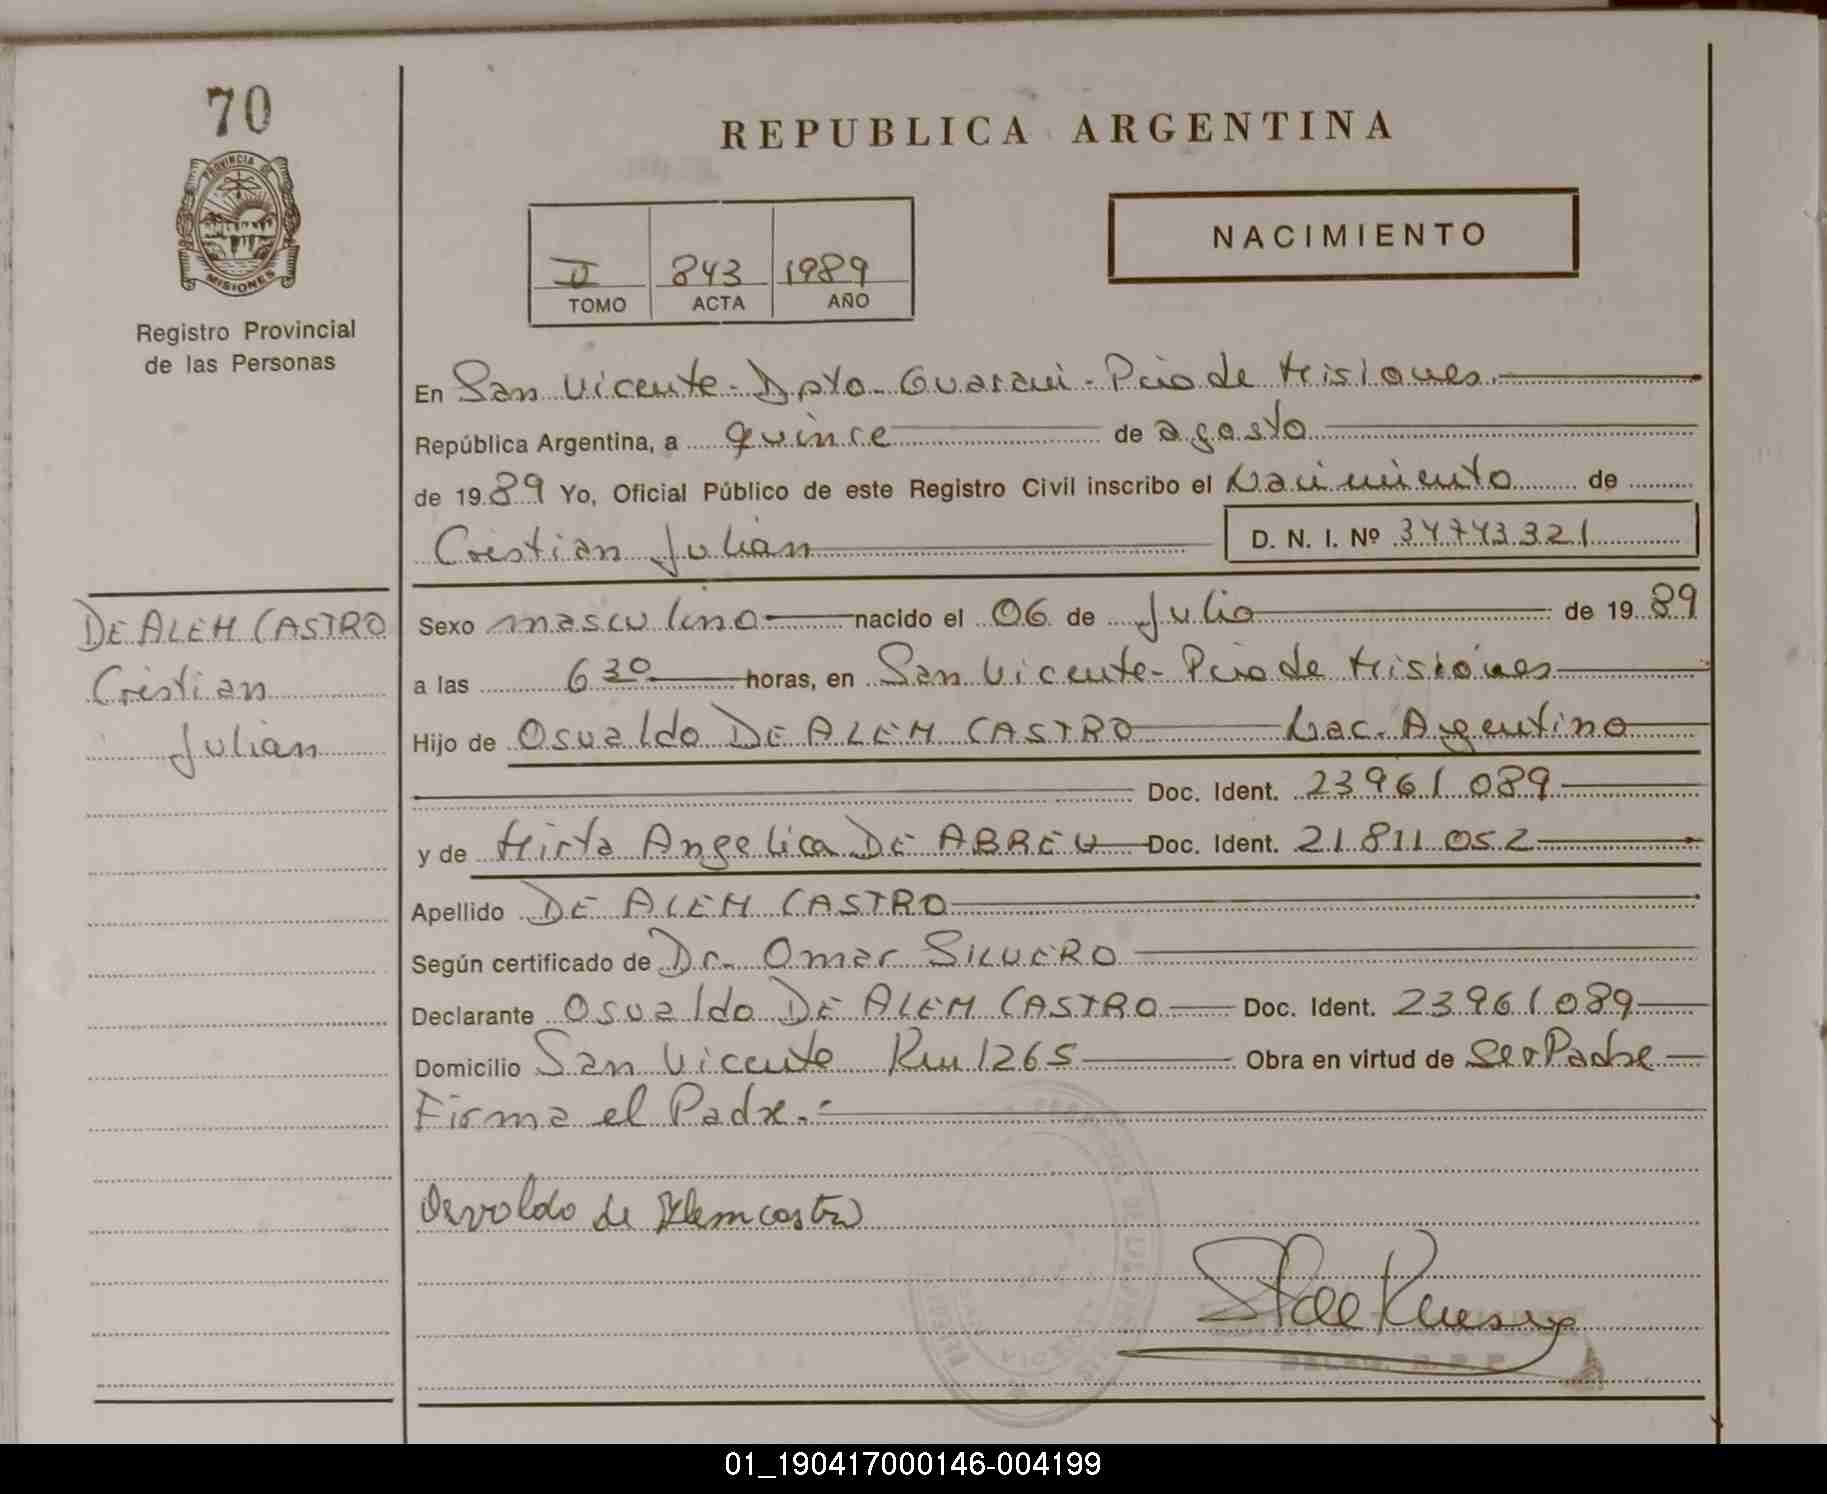 70
PROVINCIA DE
MISIONES
Registro Provincial
de las Personas
REPUBLICA ARGENTINA
NACIMIENTO
II 843 1989
TOMO ACTA AÑO
En San Vicente - Dpto - Guarani - Pcia de Misiones.
República Argentina, a quince de agosto
de 1989 Yo, Oficial Público de este Registro Civil inscribo el Nacimiento de
Cristian Julian D. N. I. Nº 34743321
DE ALEM CASTRO
Cristian
Julian
Sexo masculino nacido el 06 de Julio de 1989
a las 6 30 horas, en San Vicente - Pcia de Misiones
Hijo de Osvaldo DE ALEM CASTRO Nac. Argentino
Doc. Ident. 23961089
y de Mirta Angelica DE ABREU Doc. Ident. 21811052
Apellido DE ALEM CASTRO
Según certificado de Dr. Omar SILVERO
Declarante Osvaldo DE ALEM CASTRO Doc. Ident. 23961089
Domicilio San Vicente Km 1265 Obra en virtud de Ser Padre
Firma el Padre.-
Osvoldo de Alem castro
01_190417000146-004199